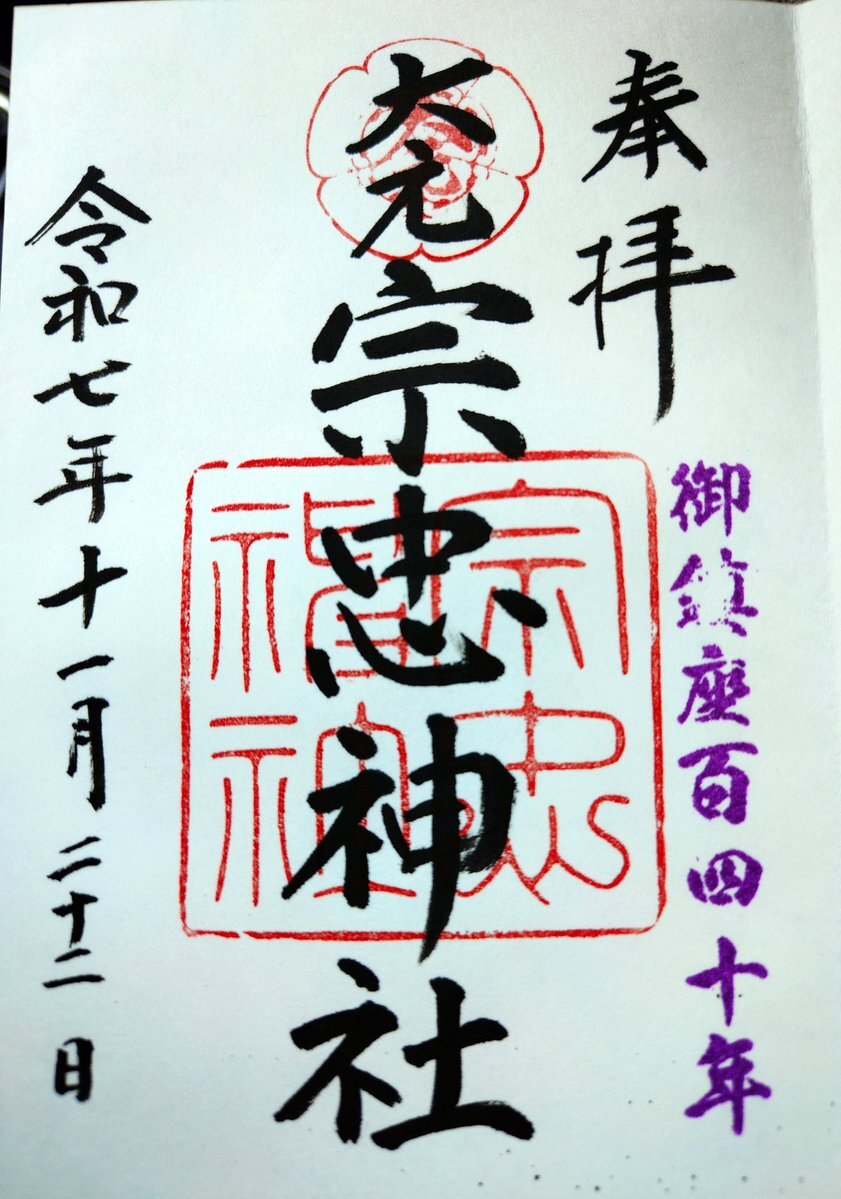 奉拝
御鎮座百四十年
大元
宗忠神社
宗忠
神社
令和七年十一月二十二日